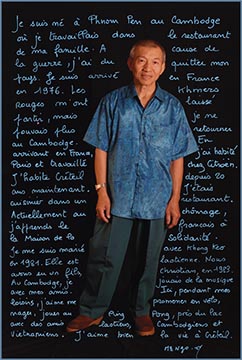 Je suis né à Phnom Pen au Cambodge
où je travaillais dans le restaurant
de ma famille. A cause de
la guerre, j'ai du quitter mon
pays. Je suis arrivé en France
en 1976. Les Khmers
Rouges m'ont laissé
partir, mais je ne
pouvais plus retourner
au Cambodge. En
arrivant en France, j'ai habité
Paris et travaillé chez Citroën.
J'habite Créteil depuis 20
ans maintenant. J'étais
cuisinier dans un restaurant.
Actuellement au chômage,
j'apprends le français à
la Maison de la Solidarité.
Je me suis marié avec
en 1981. Elle est laotienne. Nous
avons eu un fils, Christian, en 1983.
Au Cambodge, je jouais de la musique
avec mes amis. pendant mes
loisirs, j'aime me promener en vélo,
nager, jouer au Ping Pong, près du lac
avec des amis laotiens, Cambodgiens et
vietnamiens. J'aime bien la vie à Créteil.